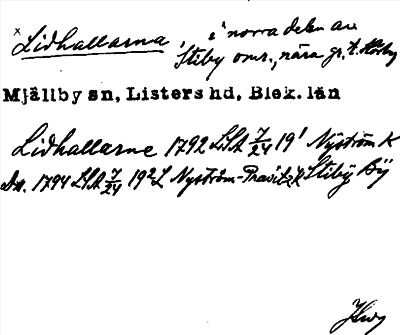 x Lidhallarna, i norra delen av
Stiby omr., nära gr. t.
Mjällby sn, Listers hd, Blek. län
Lidhallarne 1792 LSA 7/24 19¹ Nyström K
Do. 1794 LSA 7/24 19² L Nyström-Pravitz K Stiby By